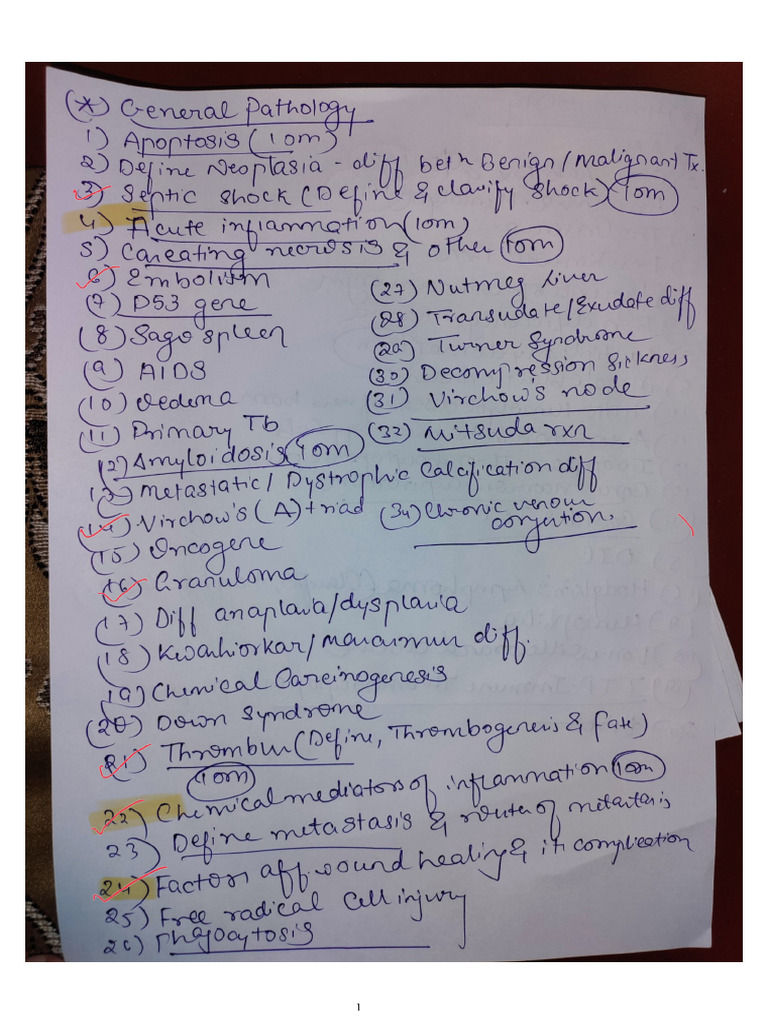 (*) General Pathology
1) Apoptosis (10m)
2) Define Neoplasia - diff betn Benign/Malignant Tx.
3) Septic shock (Define & classify shock) 10m
4) Acute inflammation (10m)
5) Caseating necrosis & other 10m
6) Embolism
(7) P53 gene
(8) Sago spleen
(9) AIDS
(10) Oedema
(11) Primary Tb
(12) Amyloidosis 10m
(13) Metastatic/Dystrophic Calcification diff
(14) Virchow's (A) triad
(15) Oncogene
(16) Granuloma
(17) Diff anaplasia/dysplasia
(18) Kwashiorkar/Marasmus diff.
(19) Chemical Carcinogenesis
(20) Down Syndrome
(21) Thrombus (Define, Thrombogenesis & fate)
10m
22) Chemical mediators of inflammation 10m
23) Define metastasis & routes of metastasis
24) Factors aff. wound healing & its complication
25) Free radical Cell injury
26) Phagocytosis
(27) Nutmeg Liver
(28) Transudate/Exudate diff
(29) Turner Syndrome
(30) Decompression Sickness
(31) Virchow's node
(32) Mitsuda rxn
(34) Chronic venous
congestion.
1